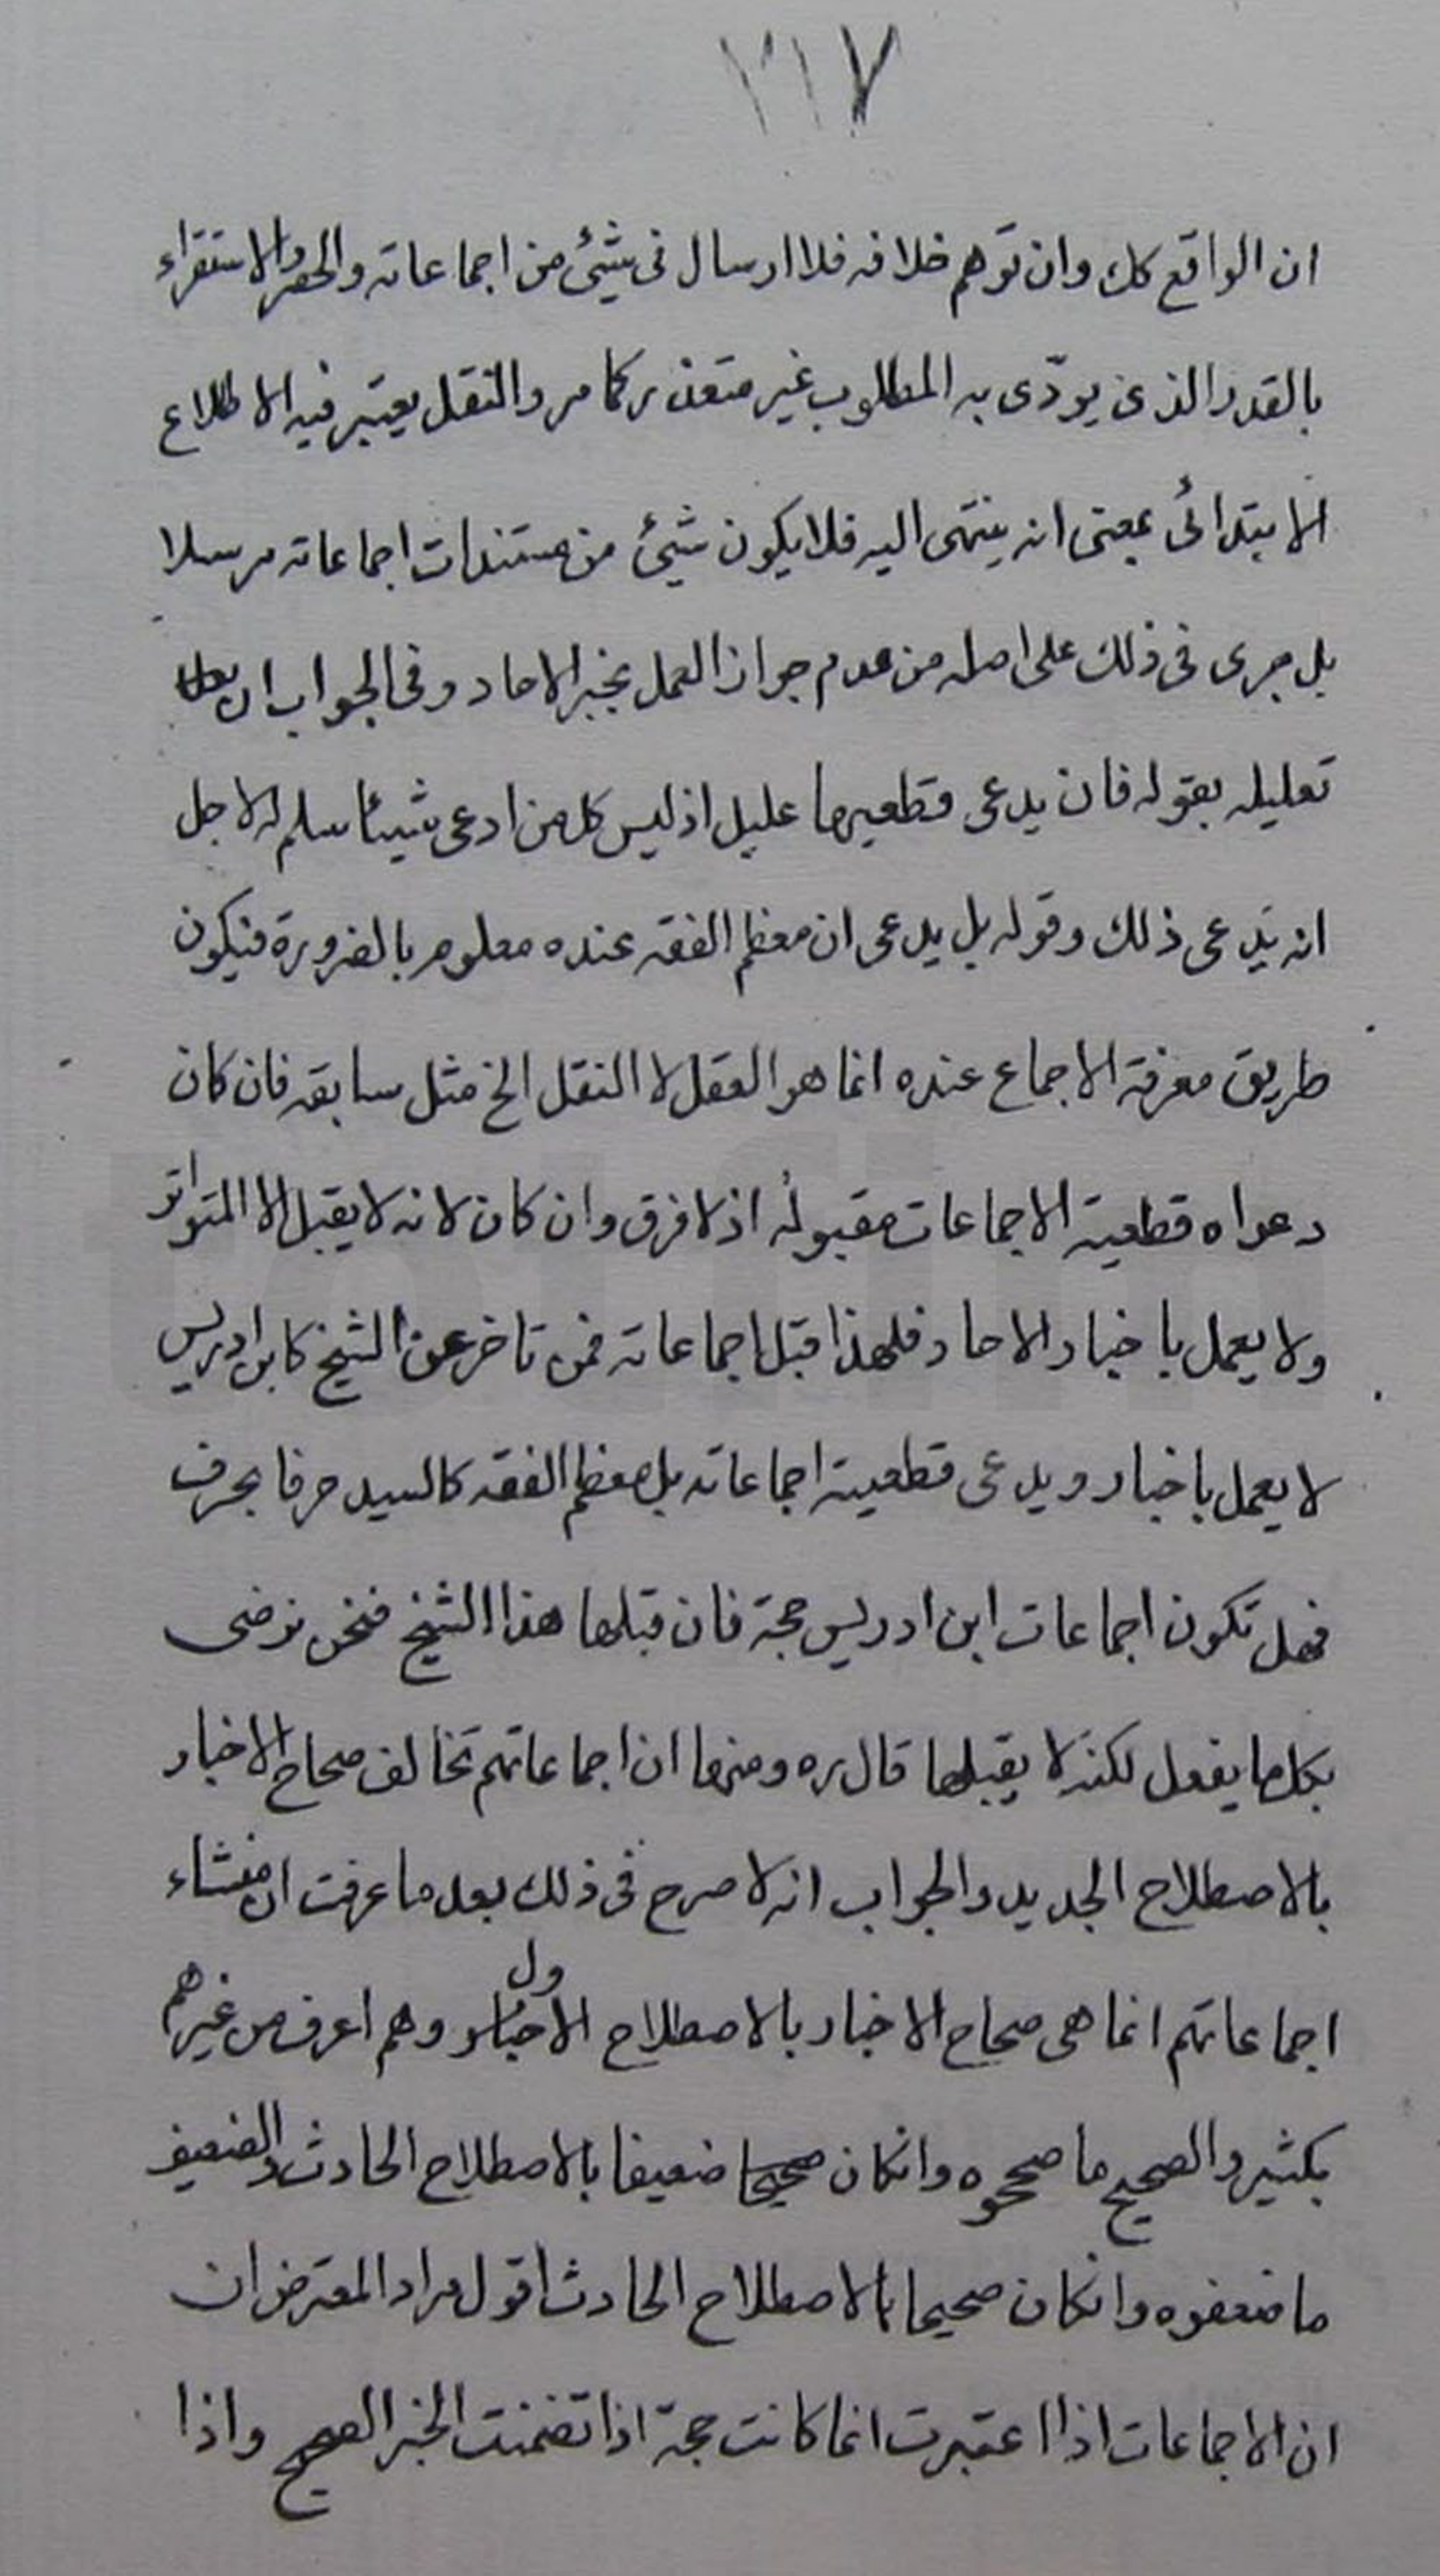 ٢١٧
ان الواقع كك وان توهم خلافه فلا ارسال فى شيئ من اجماعاته والحصر والاستقراء
بالقدر الذى يودّى به المطلوب غير متعذر كما مر والنقل يعتبر فيه الاطلاع
الابتدائى بمعنى انه ينتهى اليه فلا يكون شيئ من مستندات اجماعاته مرسلا
بل جرى فى ذلك على اصله من عدم جواز العمل بخبر الاحاد وفى الجواب ان
تعليله بقوله فان يدعى قطعيرها عليل اذ ليس كل من ادعى شيئا سلم له لاجل
انه يدعى ذلك وقوله بل يدعى ان معظم الفقه عنده معلوم بالضرورة فيكون
طريق معرفة الاجماع عنده انما هو العقل لا النقل الخ مثل سابقه فان كان
دعواه قطعية الاجماعات مقبولة اذ لا فرق وان كان لانه لا يقبل الا المتواتر
ولا يعمل باخبار الاحاد فلهذا قبل اجماعاته فمن تاخر عن الشيخ كابن ادريس
لا يعمل باخبار ويدعى قطعية اجماعاته بل معظم الفقه كالسيد حرفا بحرف
فهل تكون اجماعات ابن ادريس حجة فان قبلها هذا الشيخ فنحن نرضى
بكل ما يفعل لكنه لا يقبلها قال ره ومنها ان اجماعاتهم تخالف صحاح الاخبار
بالاصطلاح الجديد والجواب انه لا صرح فى ذلك بعد ما عرفت ان منشاء
اجماعاتهم انما هى صحاح الاخبار بالاصطلاح الاول وهم اعرف من غيرهم
بكثير والصحيح ما صححوه وانكان صحيحا ضعيفا بالاصطلاح الحادث والضعيف
ما ضعفوه وانكان صحيحا بالاصطلاح الحادث اقول مراد المعترض ان
ان الاجماعات اذا اعتبرت انما كانت حجة اذا تضمنت الخبر الصحيح واذا